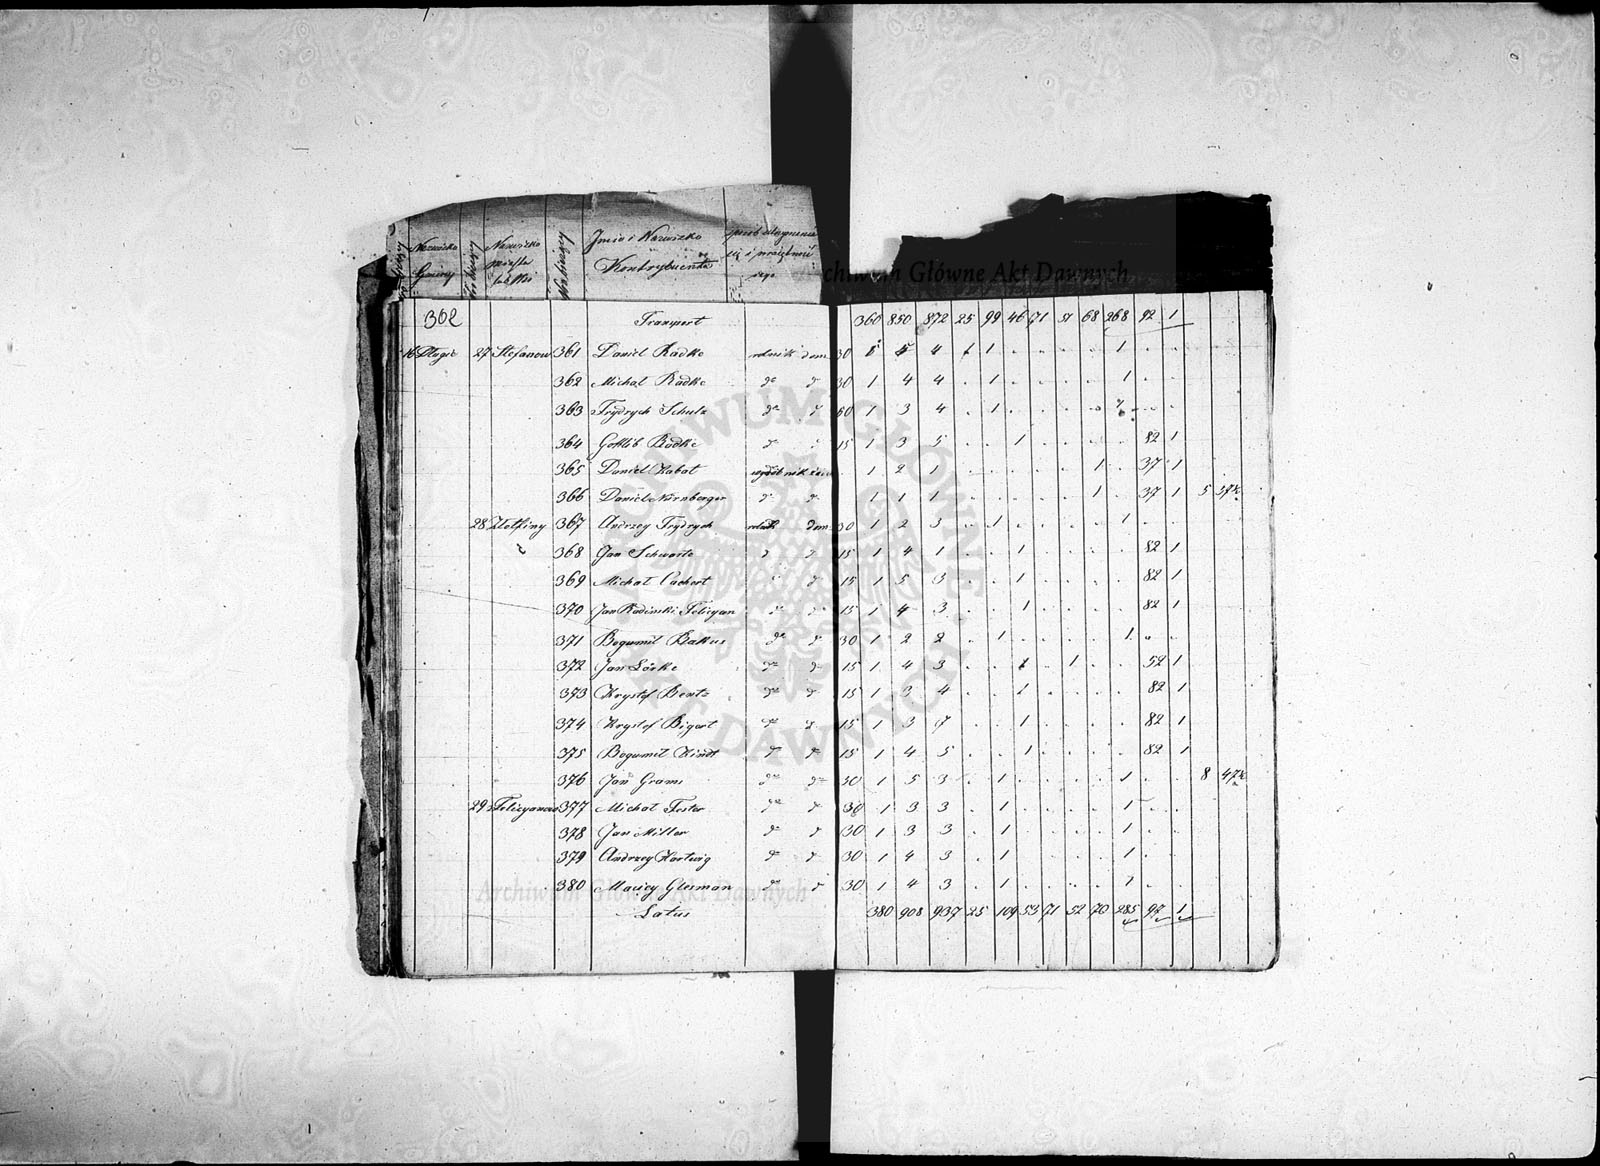 Nazwisko Gminy Nazwisko Imie i Nazwisko Kontrybuenta
Archiwum Główne Akt Dawnych
302 Transport 360 850 872 25 99 46 71 51 68 268 92 1
16 Długie 27 Stefanow 361 Daniel Radke rolnik dom 30 1 5 4 1 1 . . . . 1 . .
362 Michał Radke do d 30 1 4 4 . 1 . . . . 1 . .
363 Frydrych Schulz do d 60 1 3 4 . 1 . . .
364 Gottlib Radke d 15 1 3 5 . . 1 . . . . 82 1
365 Daniel Kabat wyrobnik . 1 2 1 . . . . . 1 . 37 1
366 Daniel Nürnberger d d . 1 1 1 . . . . . 1 . 37 1 5 37½
28 Zlotniny 367 Andrzey Frydrych rolnik dom 30 1 2 3 . 1 . . . . 1 . .
368 Jan Schwartz d d 15 1 4 1 . . 1 . . . . 82 1
369 Michał d 15 1 5 3 . . 1 . . . . 82 1
370 Jan Radinski Felicyan 15 1 4 3 . . 1 . . . . 82 1
371 Bogumil do d 30 1 2 2 . 1 . . . . 1 . .
372 Jan Lörke do d 15 1 4 3 . . 1 . 1 . . 52 1
373 Krystof Bentz do d 15 1 3 4 . . 1 . . . . 82 1
374 Krystof Bigert do d 15 1 3 7 . . 1 . . . . 82 1
375 Bogumil Kindt do d 15 1 4 5 . . 1 . . . . 82 1
376 Jan Grams do do 30 1 5 3 . 1 . . . . 1 . . 8 47½
29 Felicyanow 377 Michał Fester do d 30 1 3 3 . 1 . . . . 1 . .
378 Jan Miller do d 30 1 3 3 . 1 . . . . 1 . .
379 Andrzey Hartwig do d 30 1 4 3 . 1 . . . . 1 . .
380 Maciey Glesman do d 30 1 4 3 . 1 . . . . 1 . .
Latus 380 908 937 25 109 53 71 52 70 285 97 1
Archiwum Główne Akt Dawnych
ARCHIWUM GŁÓWNE AKT DAWNYCH